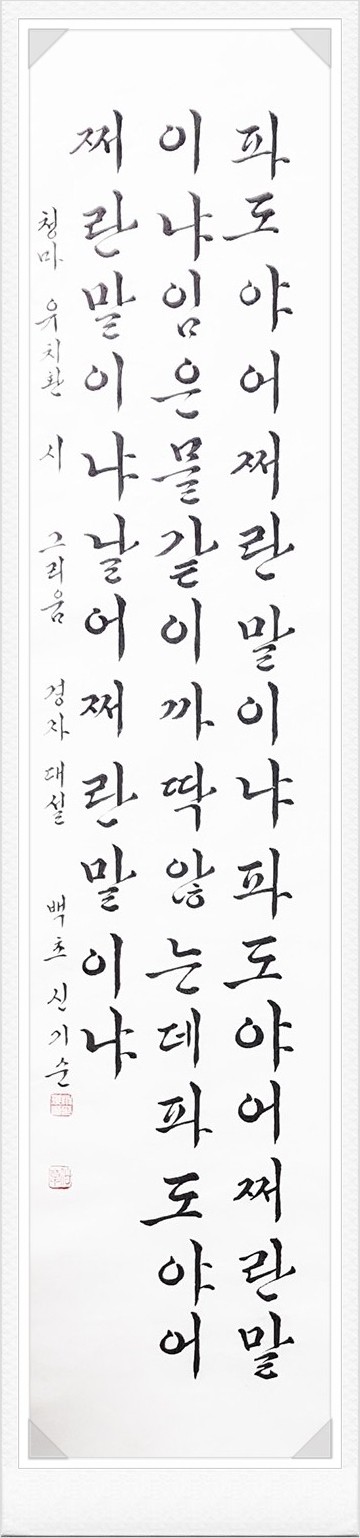 파도야어쩌란말이냐파도야어쩌란말
이냐임은물같이까딱않는데파도야어
쩌란말이냐날어쩌란말이냐
청마 유치환 시 그리움 경자 대설 백초 신기순